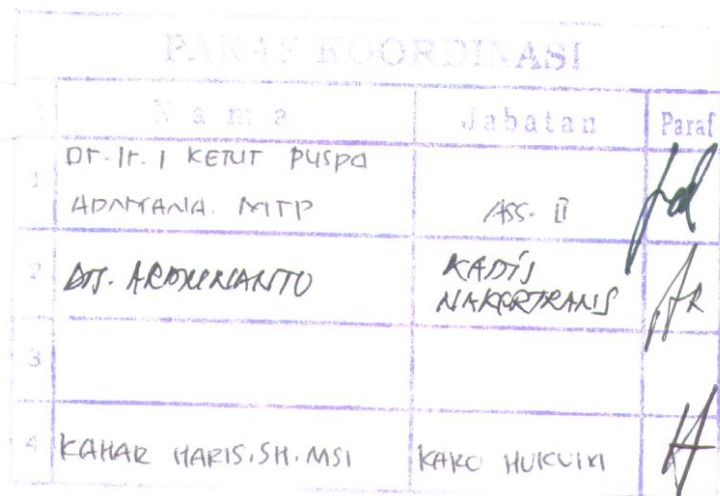 PARAF KOORDINASI
Nama Jabatan Paraf
1 Dr. Ir. I KETUT PUSPA
ADNYANA. MTP ASS. II
2 Drs. ARMUNANTO KADIS
NAKERTRANS
3
4 KAHAR HARIS. SH. MSI KARO HUKUM